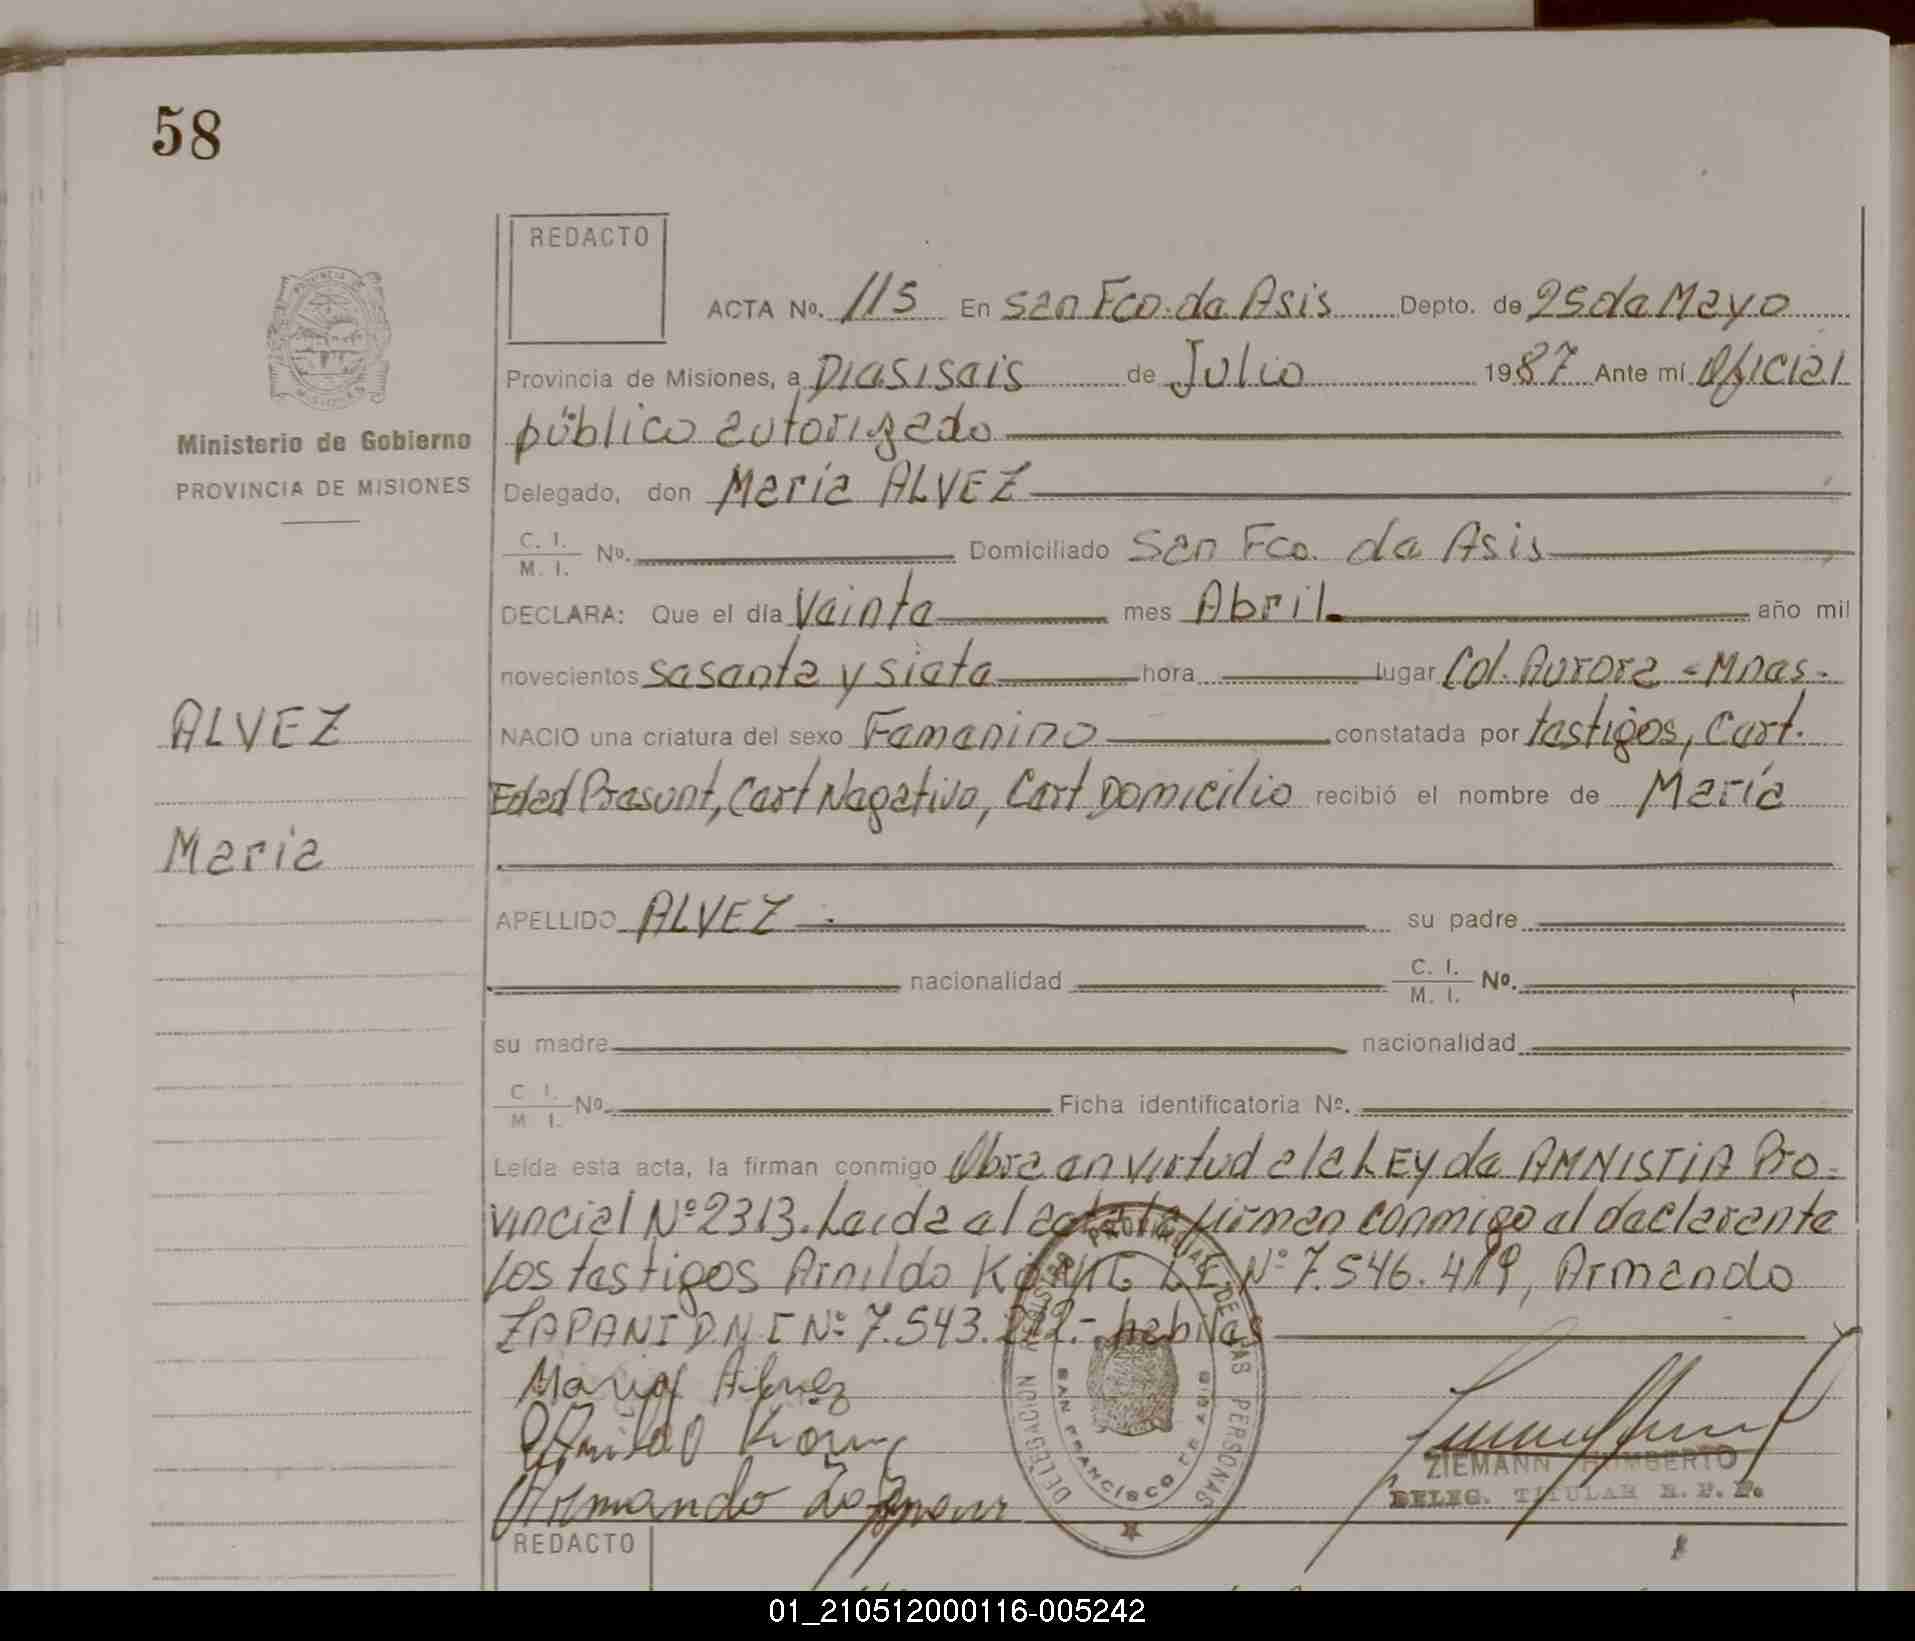 58
REDACTO
ACTA Nº. 115 En San Fco. de Asis Depto. de 25 de Mayo
Provincia de Misiones, a Diesiseis de Julio 1987 Ante mí Oficial
público autorizado
Ministerio de Gobierno
PROVINCIA DE MISIONES
Delegado, don María ALVEZ
C. I. M. I. Nº. Domiciliado San Fco. de Asis
DECLARA: Que el día Veinte mes Abril año mil
novecientos sesenta y siete hora lugar Col. Aurora - Mnes -
ALVEZ
NACIO una criatura del sexo Femenino constatada por testigos, Cert.
Edad Presunt, Cert Negativo, Cert Domicilio recibió el nombre de María
Maria
APELLIDO ALVEZ su padre
nacionalidad C. I. M. I. Nº.
su madre nacionalidad
C. I. M. I. Nº. Ficha identificatoria Nº.
Leída esta acta, la firman conmigo Obra en virtud a la LEY de AMNISTIA Pro-
vincial Nº 2313. Leida el acta la firman conmigo el declarante
los testigos Arnildo L.E. Nº 7.546.419, Armando
ZAPANI D.N.I Nº 7.543.212.- habiles
Maria Alvez
Armando
DELEGACION REGISTRO PROVINCIAL DE LAS PERSONAS
SAN FRANCISCO DE ASIS
ZIEMANN HUMBERTO
DELEG. TITULAR R. P. P.
REDACTO
01_210512000116-005242